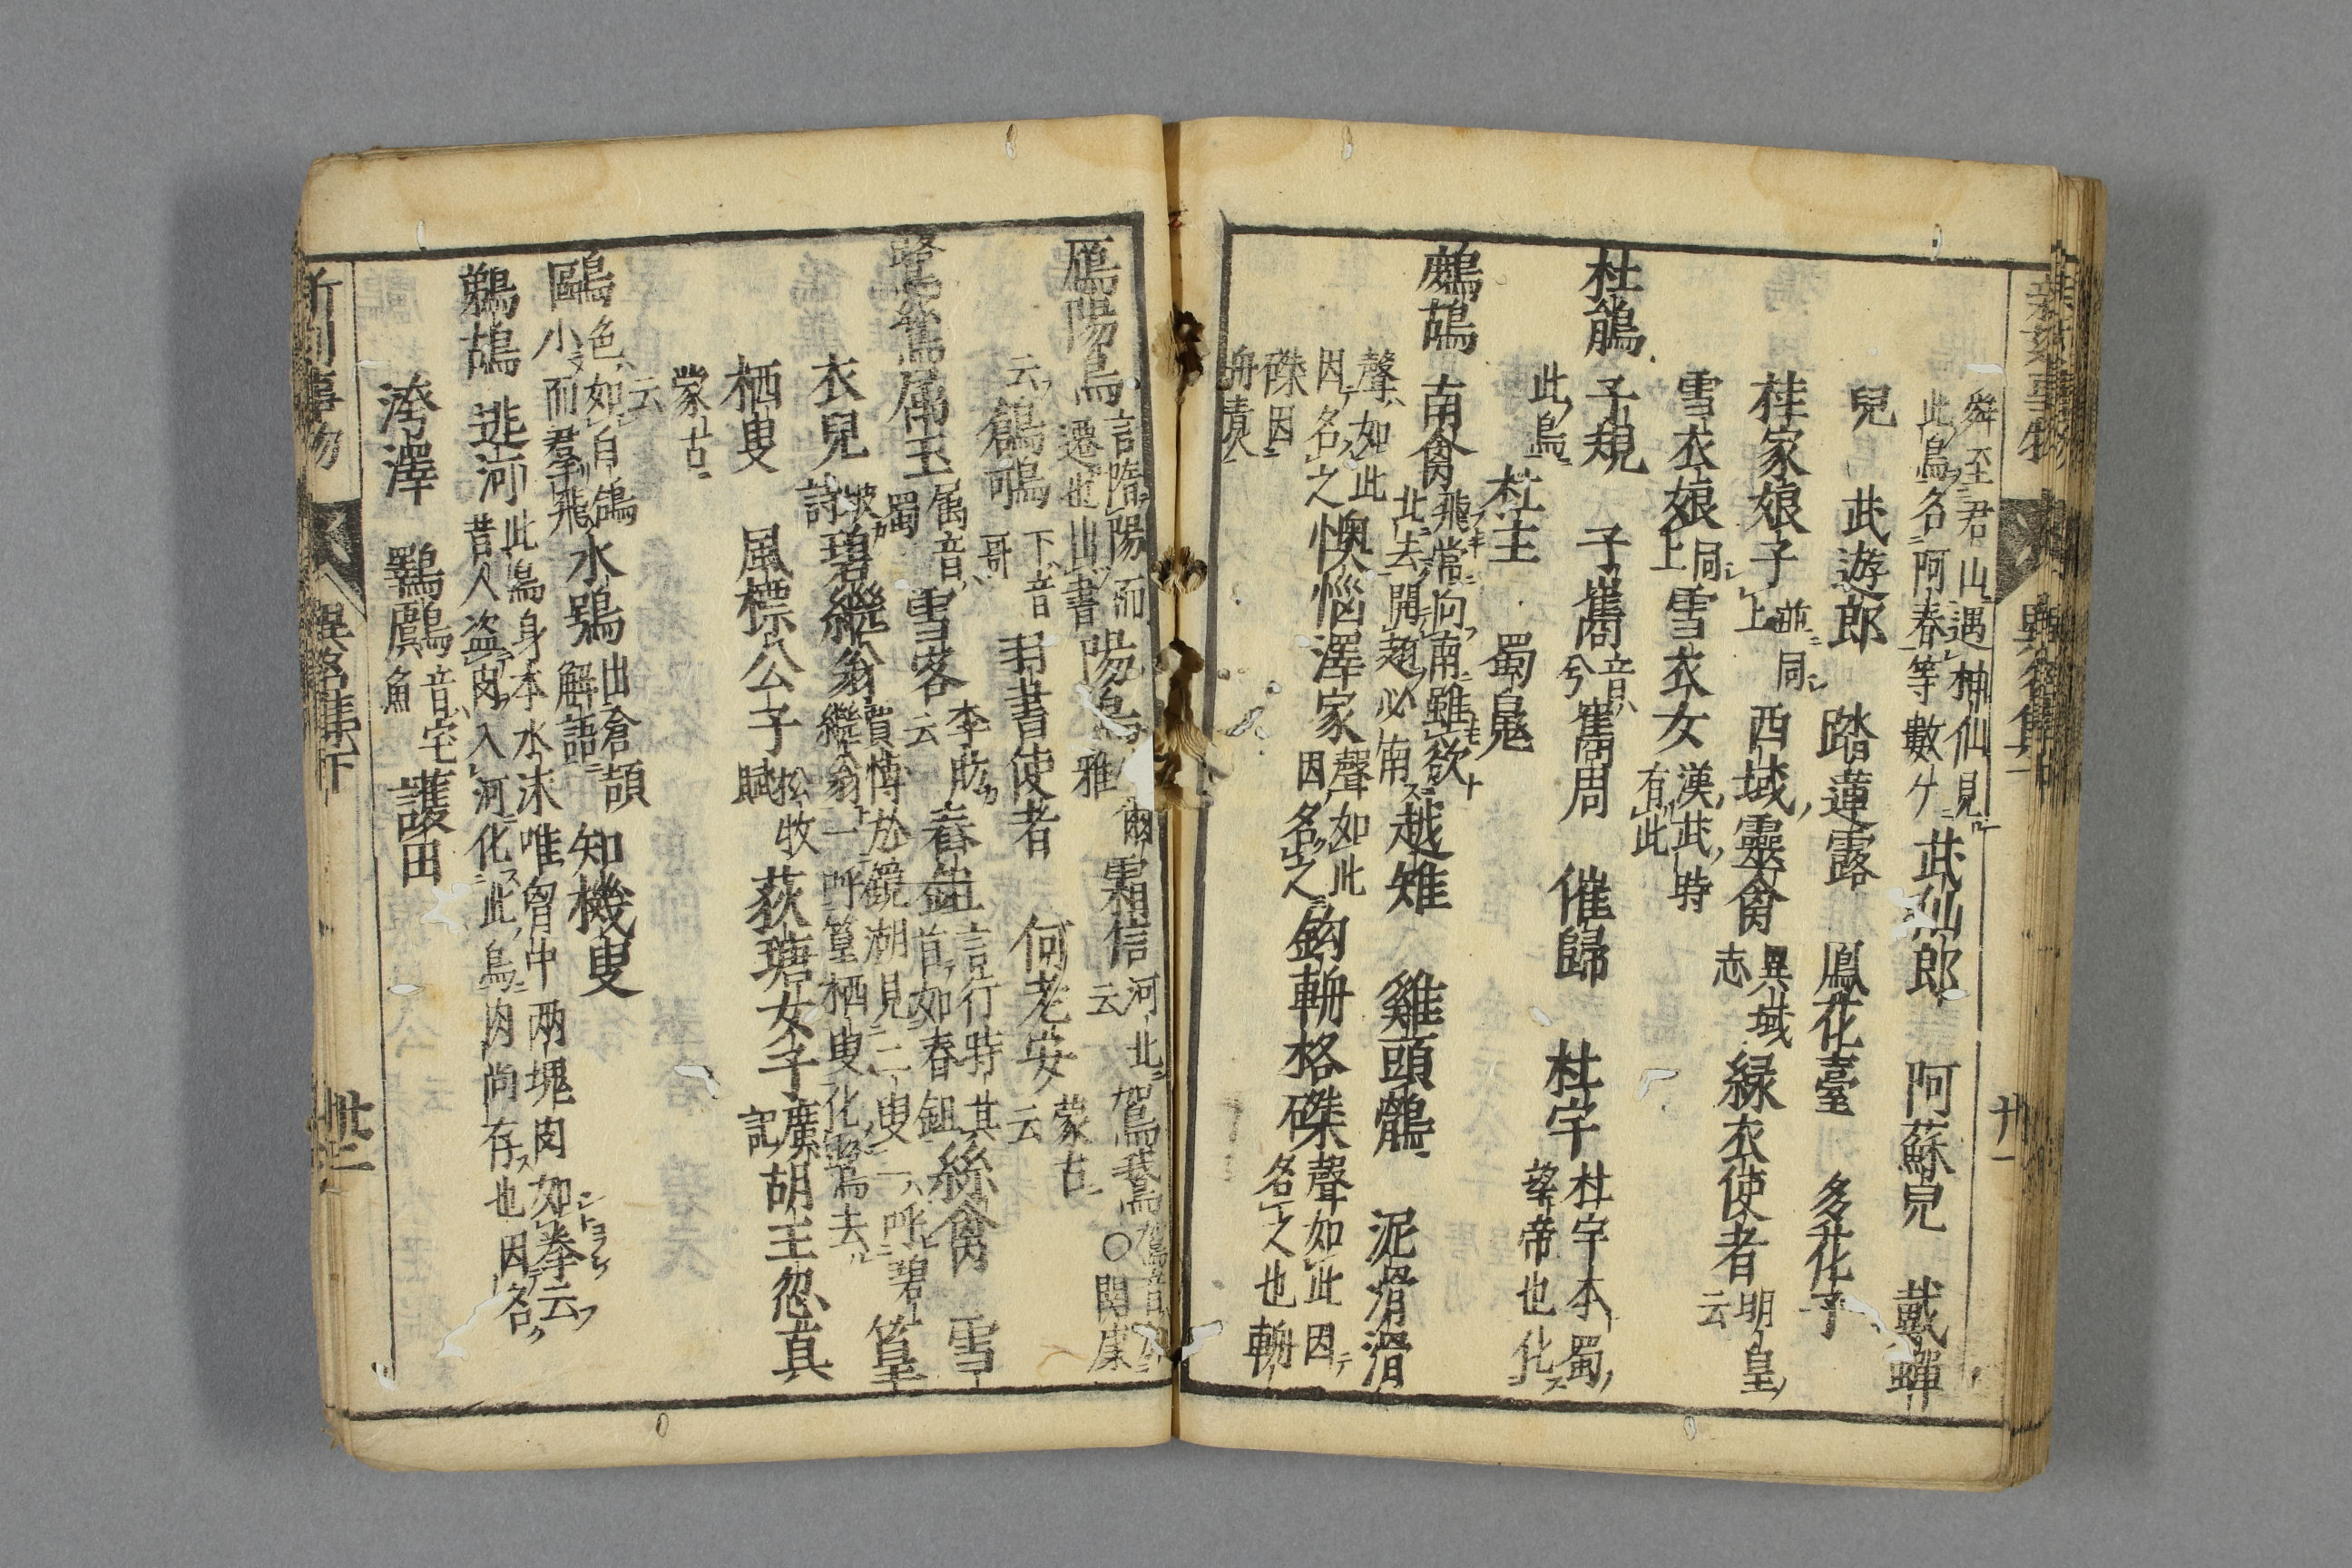 舜至君山遇神仙見
此鳥名阿春等數ケ
武仙郎　阿蘇兒　戴蟬
兒　武遊郎　踏蓮露　鳳花臺　多花子
桂家娘子
並同
上
西域靈禽
異域
志
緑衣使者
明皇
云
雪衣娘
同
上
雪衣女
漢武時
有此
杜鵑　子規　子巂
音
兮
巂周　催歸　杜宇
杜宇本蜀
望帝也化
此鳥
杜主　蜀鬼
鷓鴣　南禽
飛常向南雖欲
北去開翅必南
越雉　雞頭鶻　泥滑滑
聲如此
因名之
懊惱澤家
聲如此
因名之
鈎輈格磔
聲如此因
名之也輈
磔因
輈責
雁陽鳥
言隨陽而
遷也出書
陽鳥
爾
雅
霜信
河北
云
鴐鵞
云
鶬鴚
下音
哥
羽書使者　何老安
蒙古
云
鷺鷥属玉
属音
蜀
雪客
李昉
云
舂鉏
言行時其
首如春鉏
絲禽　雪
衣兒
坡
詩
碧繼翁
賀博於鏡湖見二叟一呼碧
繼翁一呼篁栖叟化鷺去
篁
栖叟　風標公子
杜牧
賦
荻塘女子
廣
記
胡王忽真
蒙古
云
鷗
色如白鴿
小而羣飛
水鴞
出倉頡
解語
知機叟
鵜鴣　逃河
此鳥身本水沫唯胷中兩塊肉如拳云
昔人盗肉入河化此鳥肉尚存也因名
洿澤　鸅鸆
音宅
魚
護田
新刻事物　異名集下　卅二